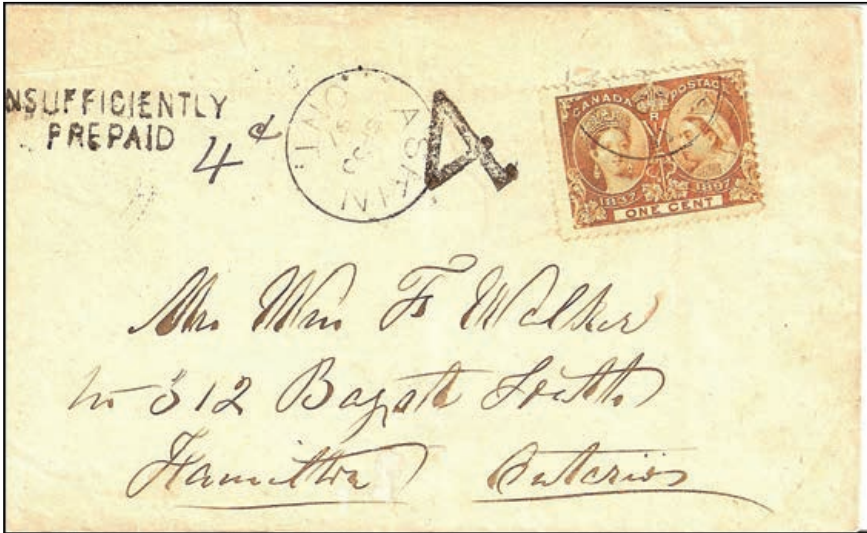 INSUFFICIENTLY
PREPAID
4¢
ASKIN
ONT.
4
CANADA POSTAGE
V R I
1837 1897
ONE CENT
Mr Wm F Walker
312 Bay St South
Hamilton Ontario